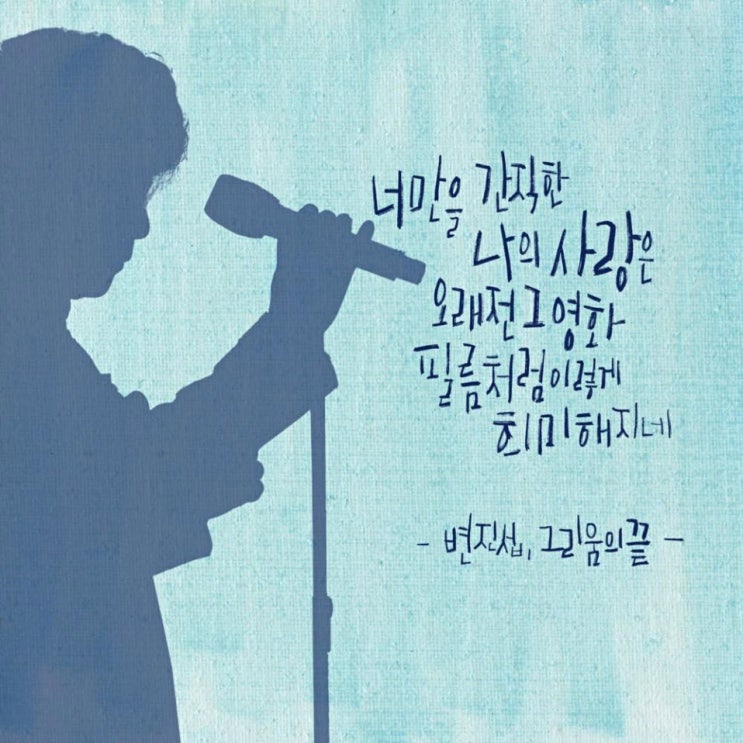 너만을 간직한
나의 사랑은
오래전 그 영화
필름처럼 이렇게
희미해지네
- 변진섭, 그리움의 끝 -